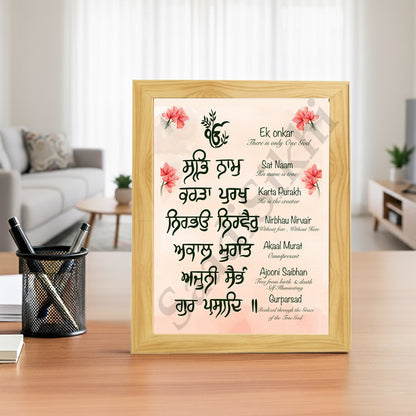 ੴ
Ek onkar
There is only One God
ਸਤਿ ਨਾਮ
Sat Naam
His name is true
ਕਰਤਾ ਪੁਰਖੁ
Karta Purakh
He is the creator
ਨਿਰਭਉ ਨਿਰਵੈਰੁ
Nirbhau Nirvair
Without fear, Without Hate
ਅਕਾਲ ਮੂਰਤਿ
Akaal Murat
Omnipresent
ਅਜੂਨੀ ਸੈਭੰ
Ajooni Saibhan
Free from birth & death
Self-Illuminating
ਗੁਰ ਪ੍ਰਸਾਦਿ ॥
Gurparsad
Realised through the Grace
of the True God